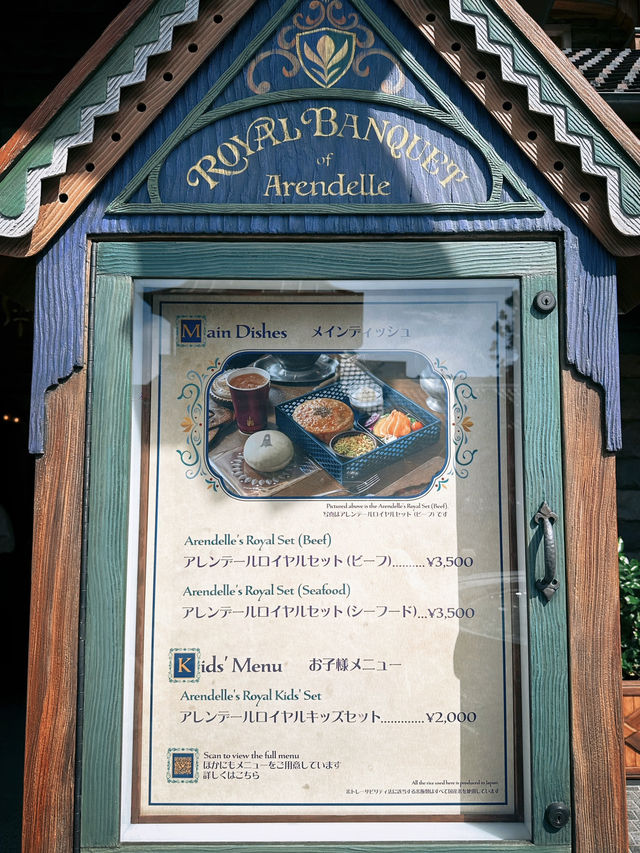 ROYAL BANQUET
of
Arendelle
Main Dishes メインディッシュ
Pictured above is the Arendelle's Royal Set (Beef).
写真はアレンデールロイヤルセット (ビーフ) です
Arendelle's Royal Set (Beef)
アレンデールロイヤルセット (ビーフ)..........¥3,500
Arendelle's Royal Set (Seafood)
アレンデールロイヤルセット (シーフード)...¥3,500
Kids' Menu お子様メニュー
Arendelle's Royal Kids' Set
アレンデールロイヤルキッズセット.............¥2,000
Scan to view the full menu
ほかにもメニューをご用意しています
詳しくはこちら
All the rice used here is produced in Japan.
米トレーサビリティ法に該当する米穀類はすべて国産米を使用しています